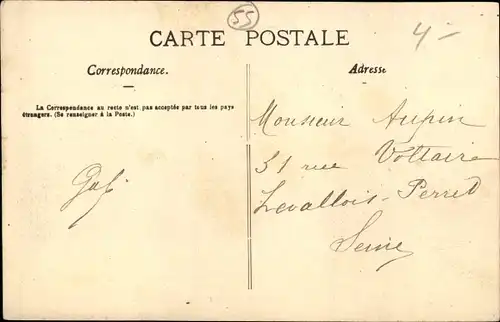 55
4-
CARTE POSTALE
Correspondance.
Adresse
La Correspondance au recto n'est pas acceptée par tous les pays
étrangers. (Se renseigner à la Poste.)
Monsieur Aupin
31 rue Voltaire
Levallois-Perret
Seine